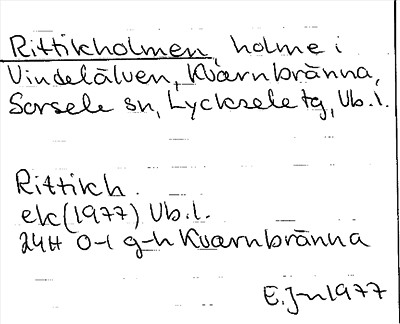 Rittikholmen, holme i
Vindelälven, Kvarnbränna,
Sorsele sn, Lycksele tg, Vb.l.
Rittikh.
ek (1977) Vb.l.
24H 0-1 g-h Kvarnbränna
E.Jn 1977